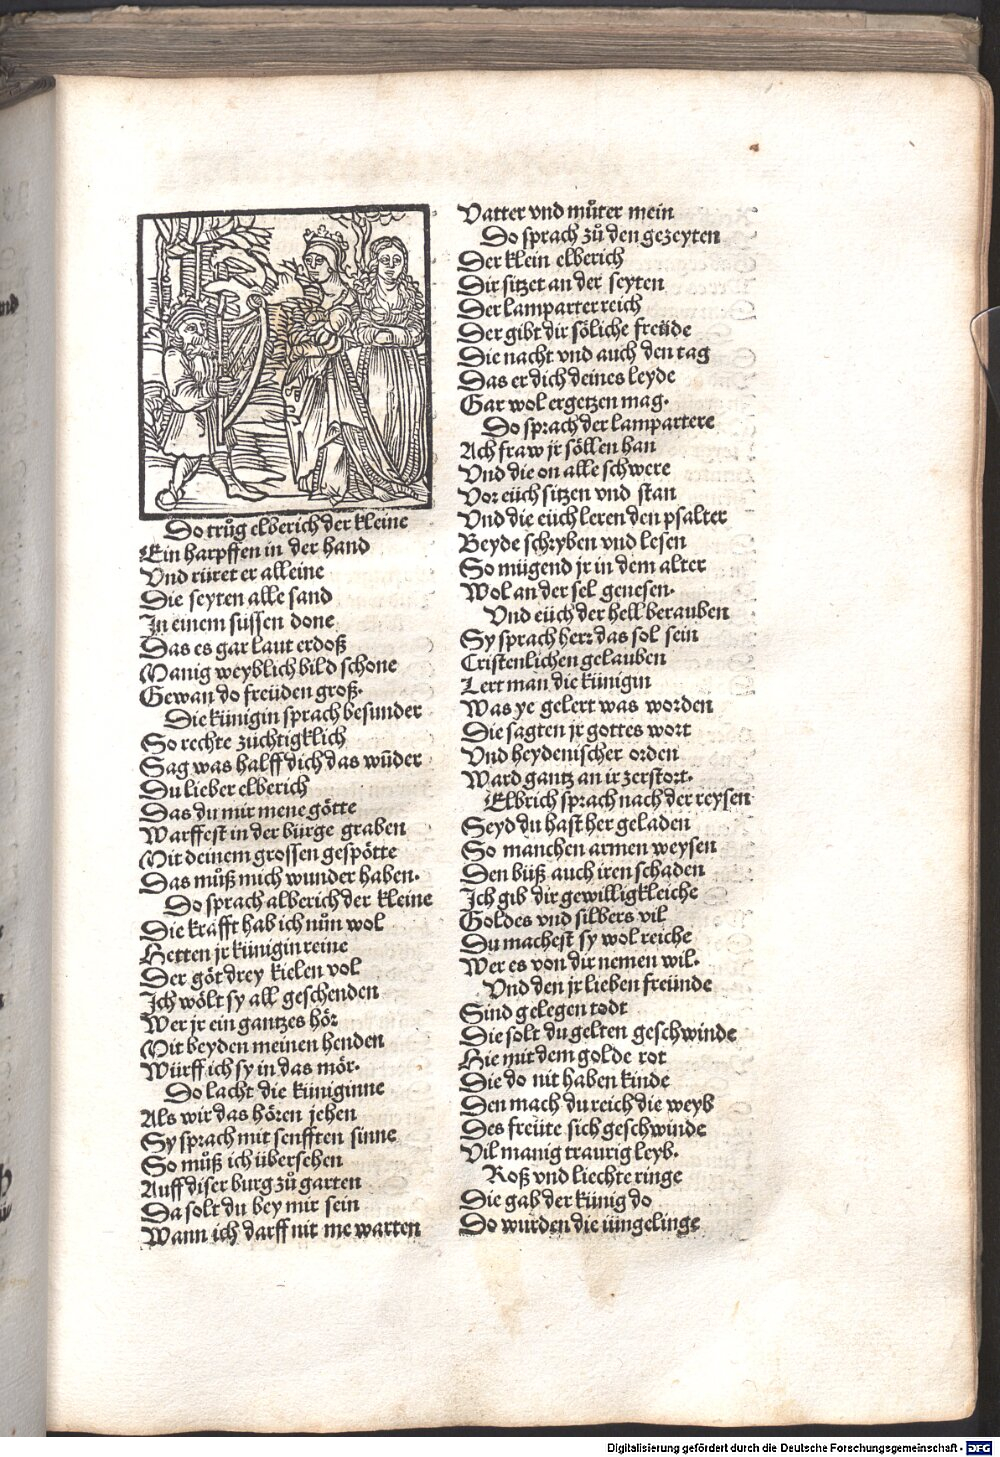 Do trůg elberich der kleine
Ein harpffen in der hand
Vnd rüret er alleine
Die seyten alle sand
In einem süssen done
Das es gar laut erdoß
Manig weyblich bild schone
Gewan do freüden groß.
Die künigin sprach besunder
So rechte züchtigklich
Sag was halff dich das wūder
Du lieber elberich
Das du mir mene götte
Warffest in der bürge graben
Mit deinem grossen gespötte
Das můß mich wunder haben.
Do sprach alberich der kleine
Die krafft hab ich nůn wol
Hetten jr künigin reine
Der göt drey kielen vol
Ich wölt sy all geschenden
Wer jr ein gantzes hör
Mit beyden meinen henden
Würff ich sy in das mör.
Do lacht die küniginne
Als wir das hören jehen
Sy sprach mit senfften sinne
So můß ich übersehen
Auff diser burg zů garten
Da solt du bey mir sein
Wann ich darff nit me warten
Vatter vnd můter mein
Do sprach zů den gezeyten
Der klein elberich
Dir sitzet an der seyten
Der lamparter reich
Der gibt dir söliche freüde
Die nacht vnd auch den tag
Das er dich deines leyde
Gar wol ergetzen mag.
Do sprach der lampartere
Ach fraw jr söllen han
Vnd die on alle schwere
Vor eüch sitzen vnd stan
Vnd die eüch leren den psalter
Beyde schryben vnd lesen
So mügend jr in dem alter
Wol an der sel genesen.
Vnd eüch der hell berauben
Sy sprach herr das sol sein
Cristenlichen gelauben
Lert man die künigin
Was ye gelert was worden
Die sagten jr gottes wort
Vnd heydenischer orden
Ward gantz an ir zerstort.
Elbrich sprach nach der reysen
Seyd du hast her geladen
So manchen armen weysen
Den büß auch iren schaden
Ich gib dir gewilligkleiche
Goldes vnd silbers vil
Du machest sy wol reiche
Wer es von dir nemen wil.
Vnd den jr lieben freünde
Sind gelegen todt
Die solt du gelten geschwinde
Hie mit dem golde rot
Die do nit haben kinde
Den mach du reich die weyb
Des freüte sich geschwinde
Vil manig traurig leyb.
Roß vnd liechte ringe
Die gab der künig do
Do wurden die iüngelinge
Digitalisierung gefördert durch die Deutsche Forschungsgemeinschaft - DFG